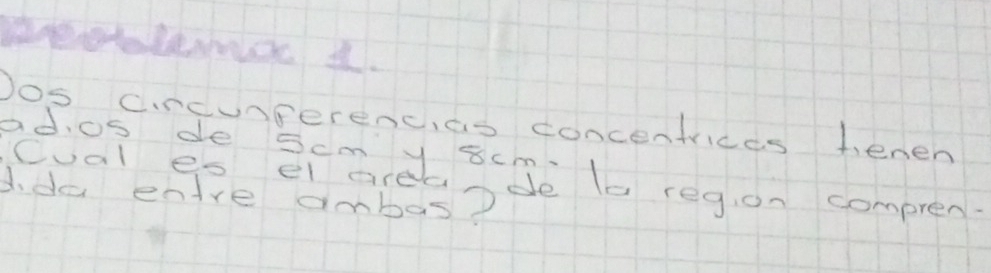 Problema 1.
Dos circunferencias concentricas tienen
adios de 5cm y 8cm.
Cual es el area de la region compren-
dida entre ambas?